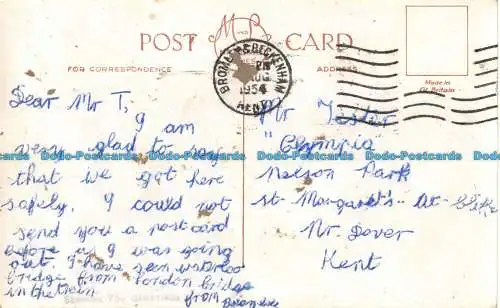 POST CARD
FOR CORRESPONDENCE
ADDRESS
Made in
Gt. Britain
BROMLEY & BECKENHAM
AUG
1954
KENT
Dear Mr T,
I am
very glad to say
that we got here
safely, I could not
send you a postcard
before as I was going
out I have seen waterloo
bridge from London bridge
in the train
from
Mr Tester
"Olympia
Nelson Park
St-Margaret's-At-Cliffe
Nr. Dover
Kent
Dodo-Postcards Dodo-Postcards Dodo-Postcards Dodo-Postcards Dodo-Postcards